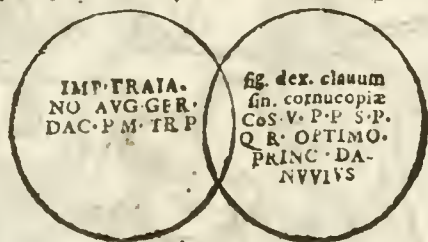 IMP·TRAIA-
NO AVG·GER·
DAC·P M· TR P
fig. dex. clauum
sin. cornucopiæ
CoS·V· P·P S·P.
Q R· OPTIMO·
PRINC·DA-
NVVIVS